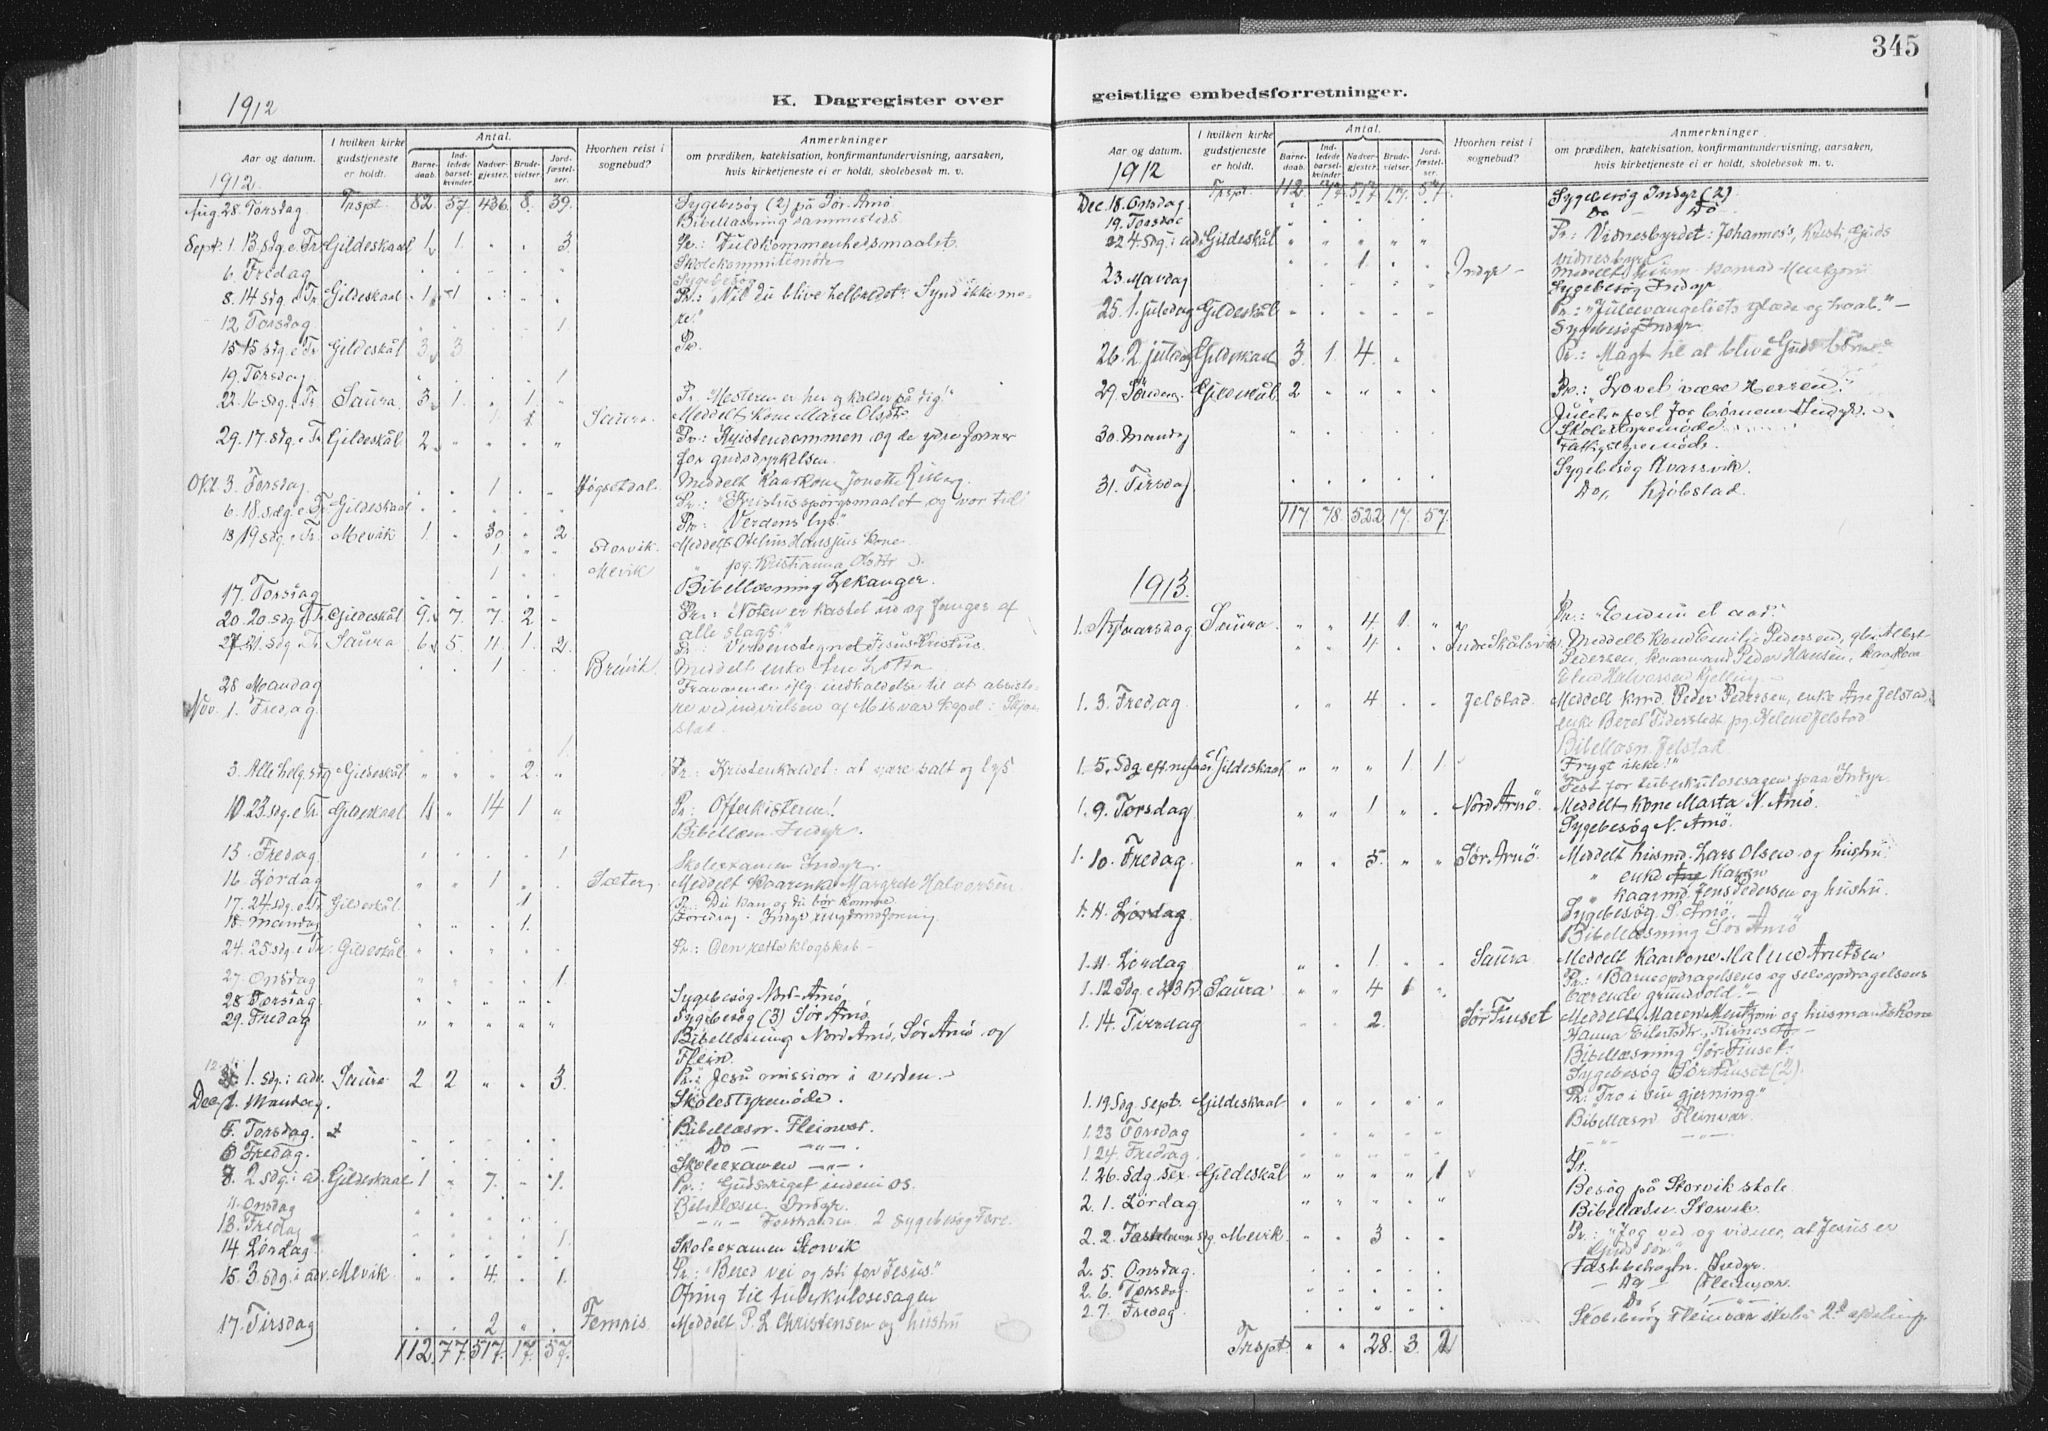 345
1912
K. Dagregister over
Aar og datum.
I hvilken kirke gudstjeneste er holdt.
Antal.
Barnedaab.
Indledede barselkvinder.
Nadvergjester.
Brudevielser.
Jordfæstelser.
Hvorhen reist i sognebud?
Anmerkninger
om prædiken, katekisation, konfirmantundervisning, aarsaken,
hvis kirketjeneste ei er holdt, skolebesøk m. v.
1912.
Aug. 28. Torsdag Trspt. 82. 57. 436. 8. 39. Sygebesøg (2) på Sør-Arnø
Bibellæsning sammesteds
Sept. 1. 13. sdg. e. Tr. Gildeskaal 1 1. " " 3. Pr.: Fuldkommenhedsmaalet.
Skolekommitemøte
6. Fredag Sygebesøg
8. 14 sdg. e Tr. Gildeskaal 1 1 Pr.: "Vil du blive helbredet? Synd ikke me-
12. Torsdag 1 re!"
15 15 sdg. e Tr. Gildeskål 3 3 Pr.
19. Torsdag 1
22. 16 sdg. e Tr. Saura. 3 1. " 1. " Pr. "Mesteren er her og kalder på dig!"
Saura. Meddelt Kone Maren Olsdtr
29. 17. sdg. e Tr. Gildeskål 2 " " " " Pr.: Kristendommen og de ydre former
for gudsdyrkelsen.
Okt. 3. Torsdag 1 Høgsetdal. Meddelt Kaarkone Jonette Risberg.
6. 18. sdg. e. Tr. Gildeskaal Pr.: "Kristusspørgsmaalet og vor tid!
13 19 sdg. e Tr. Mevik 1. " 30 " 2. Pr.: "Verdens lys"
1 " " Storvik. Meddelt Otelius Hansjøns Kone
1 Mevik pg. Kristianna Olsdtr
17. Torsdag Bibellæsning Lekanger.
20. 20. sdg e Tr. Gildeskål. 9 7. 7. 2 Pr.: "Noten er kastet ud og fanger af
alle slags."
27. 21. sdg Tr. Saura 6 5. 11. 1. 2. Pr.: Verdenstegnet Jesus Kristus.
1 Breivik. Meddelt enke Ane Lotta
28 Mandag Fraværende iflg indkaldelse til at assiste-
Nov. 1. Fredag. re ved indvielsen af Misvær Kapel i Skjer-
stad.
1.
3. Alle helg. sdg Gildeskål " " " 2. " Pr.: Kristenkaldet: at være salt og lys.
10. 23. sdg. e Tr. Gildeskaal 1 " 14 1 " Pr.: Offerkisterne!
Bibellæsn. Indyr.
15. Fredag 1 Skoleexamen Indyr.
16. Lørdag " " 1 Sæter Meddelt Kaarenke Margrete Halvorsen.
17. 24 sdg. e Tr. Gildeskål. 1 Pr.: Du kan og du bør komme
18. Mandag 1. Foredrag: Indyr ungdomsforening
24. 25 sdg. e Tr. Gildeskål Pr.: Den rette klogskab –
27. Onsdag 1.
28 Torsdag Sygebesøg Nord-Arnø
29. Fredag Sygebesøg (3) Sør Arnø
Bibellæsning Nord Arnø, Sør Arnø og
Flein.
1. sdg. i adv. Saura 2 2 " " 3. Pr.: Jesu mission i verden. –
Dec. 2. Mandag. Skolestyremøde.
5. Torsdag. Bibellæsn. Fleinvær.
6 Fredag. Do — —"—
Skoleexamen —"—
8. 2 sdg. i adv. Gildeskaal 1 " 7. " 1. Pr.: Gudsriget indeni os.
11. Onsdag Bibellæsn. Indyr.
13. Fredag —"— 2 sygebesøg Føre.
14. Lørdag. 1 Skoleexamen Storvik
15. 3. sdg. i adv. Mevik. " " 4. " 1. Pr.: "Bered vei og sti for Jesus."
Ofring til tuberkulosesagen
17. Tirsdag 2 Femris. Meddelt P. L. Christensen og hustru
112. 77. 517. 17. 57.
geistlige embedsforretninger.
Aar og datum.
I hvilken kirke gudstjeneste er holdt.
Antal.
Barnedaab.
Indledede barselkvinder
Nadvergjester.
Brudevielser.
Jordfæstelser.
Hvorhen reist i sognebud?
Anmerkninger
om prædiken, katekisation, konfirmantundervisning, aarsaken,
hvis kirketjeneste ei er holdt, skolebesøk m. v.
1912
Trspt. 112. 77. 517. 17. 57.
Dec. 18. Onsdag Sygebesøg Indyr (2)
19. Torsdag Do — Do
22 4. sdg. i adv. Gildeskål " " " " " Pr.: Vidnesbyrdet: Johannes's, Kristi, Guds
vidnesbyrd
1. Indyr – Meddelt Konrad Mentzoni
23. Mandag Sygebesøg Indyr
25. 1. juledag Gildeskål Pr.: "Juleevangeliets glæde og haab." –
Sygebesøg Indyr.
26. 2 juledag Gildeskaal 3. 1. 4. Pr.: Magt til at blive Guds børn.
29. Søndag. Gildeskål 2 " " Pr.: "Lovet være Herren."
Juletræfest for børnene Indyr.
30. Mandag Skolestyremøde
Fattigstyremøde.
Sygebesøg Kvarsvik.
31. Tirsdag Do,, Kjøbstad.
117. 78. 522 17. 57.
1913.
1. Nytaarsdag Saura. " " 4 1. " Pr.: "Endnu et aar."
" " 4 Indre Skålsvik Meddelt Kand Emilie Pedersen, glv. Albert
Pedersen, kaarmand Peder Hansen, kaarkone
Elen Halvorsen Kjelling –
1. 3. Fredag " " 4 Jelstad. Meddelt kmd. Peder Pedersen, enke Ane Jelstad,
enke Beret Pedersdtr pg. Helene Jelstad
Bibellæsn. Jelstad
1. 5. Sdg. eft. nytaar Gildeskaal " " " 1. 1. "Frygt ikke!"
Fest for tuberkulosesagen paa Indyr.
1. 9. Torsdag " " 1 Nord Arnø. Meddelt Kone Marta N. Arnø.
Sygebesøg N. Arnø.
1. 10. Fredag " " 5. " " Sør Arnø. Meddelt husmd. Lars Olsen og hustru
" enke Karen
" kaarmd. Jens Pedersen og hustru.
1. 11. Lørdag Sygebesøg S. Arnø.
Bibellæsning Sør Arnø
1. 11. Lørdag " 1 Saura. Meddelt Kaarkone Malene Arntsen
1. 12 Sdg. e H3K. Saura " " 4 1 Pr.: "Barneopdragelsens og selvopdragelsens
bærende grundvold." –
1. 14. Tirsdag 2. Sør Finset Meddelt Maren Mentzoni og husmandskone
Hanna Eilertsdtr. Finset
Bibellæsning Sør Finset.
Sygebesøg Sør Finset (2).
1. 19 Sdg. sept. Gildeskaal Pr.: "Tro i sin gjerning"
1. 23 Torsdag Bibellæsn Fleinvær
1 24. Fredag —"— —"—
1. 26. Sdg. sex. Gildeskål " " " " 1 Pr.
2. 1. Lørdag Besøg på Storvik skole.
Bibellæsn. Storvik.
2. 2. Fastelavns sdg. Mevik. " " 3 Pr.: "Jeg ved og vidner, at Jesus er
Guds søn."
2. 5. Onsdag. Indyr.
2. 6. Torsdag – Do – Fleinvær.
2. 7. Fredag Do —"—
Skolebesøg Fleinvær skole 2den afdeling
Trspt. " " 28. 3. 2